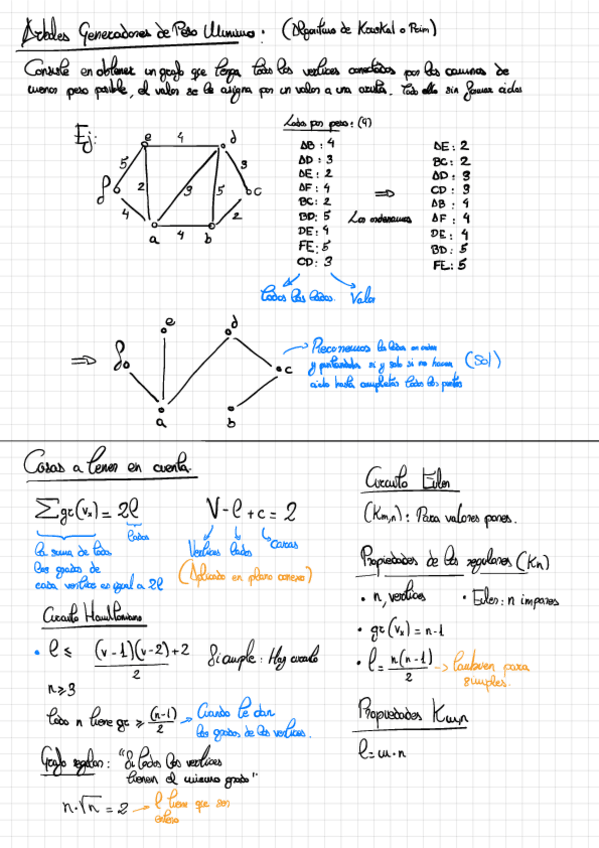 Arboles Generadores de Peso Minimo: (Algoritmo de Kruskal o Prim)
Consiste en obtener un grafo que tenga todos los vertices conectados por los caminos de
menor peso posible, el valor se le asigna por un valor a una arista. Todo ello sin formar ciclos
Ej:
Lados por peso: (9)
e 4 d
5 2 3 5 3
f c
4 4 2
a b
AB: 4
AD: 3
AE: 2
AF: 4
BC: 2
BD: 5
DE: 4
FE: 5
CD: 3
⇒
Los ordenamos
AE: 2
BC: 2
AD: 3
CD: 3
AB: 4
AF: 4
DE: 4
BD: 5
FE: 5
Todos los lados. Valor
⇒
e d
f c
a b
Recorremos los lados en orden
y pintandolos si y solo si no hacen (Sol)
ciclo hasta completar todos los puntos
Cosas a tener en cuenta.
Σgr(vx) = 2l
lados
la suma de todos
los grados de
cada vertice es igual a 2l
V - l + c = 2
Vertices lados caras
(Aplicado en plano conexo)
Circuito Hamiltoniano
• l ≤ (v-1)(v-2)+2 / 2 Simple: Hay circuito
n ≥ 3
todo n tiene gr ≥ (n-1)/2 → Cuando te dan
los grados de los vertices.
Grafo regular: "Si todos los vertices
tienen el mismo grado"
n·√n = 2 → l tiene que ser
entero
Circuito Euler
(Km,n): Para valores pares.
Propiedades de los regulares (Kn)
• n, vertices • Euler: n impares
• gr(vx) = n-1
• l = n(n-1)/2 → tambien para
simples.
Propiedades Km,n
l = m·n